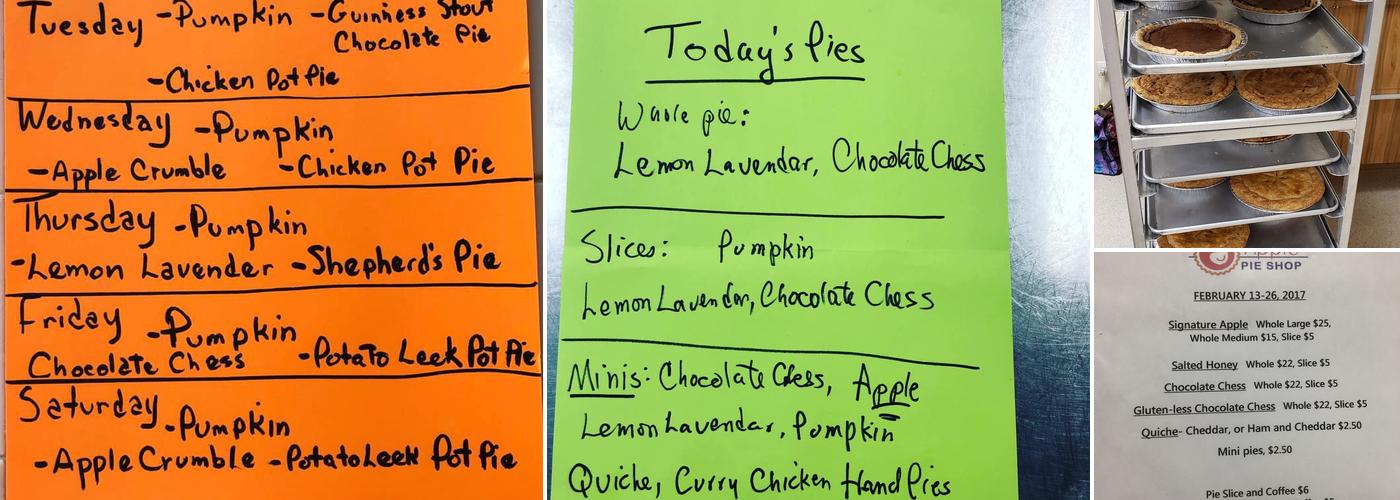 Tuesday -Pumpkin -Guinness Stout
Chocolate Pie
-Chicken Pot Pie
Wednesday -Pumpkin
-Apple Crumble -Chicken Pot Pie
Thursday -Pumpkin
-Lemon Lavender -Shepherd's Pie
Friday -Pumpkin
Chocolate Chess -Potato Leek Pot Pie
Saturday -Pumpkin
-Apple Crumble -Potato Leek Pot Pie
Today's Pies
Whole pie:
Lemon Lavendar, Chocolate Chess
Slices: Pumpkin
Lemon Lavendar, Chocolate Chess
Minis: Chocolate Chess, Apple
Lemon Lavendar, Pumpkin
Quiche, Curry Chicken Hand Pies
Apple
PIE SHOP
FEBRUARY 13-26, 2017
Signature Apple Whole Large $25,
Whole Medium $15, Slice $5
Salted Honey Whole $22, Slice $5
Chocolate Chess Whole $22, Slice $5
Gluten-less Chocolate Chess Whole $22, Slice $5
Quiche- Cheddar, or Ham and Cheddar $2.50
Mini pies, $2.50
Pie Slice and Coffee $6